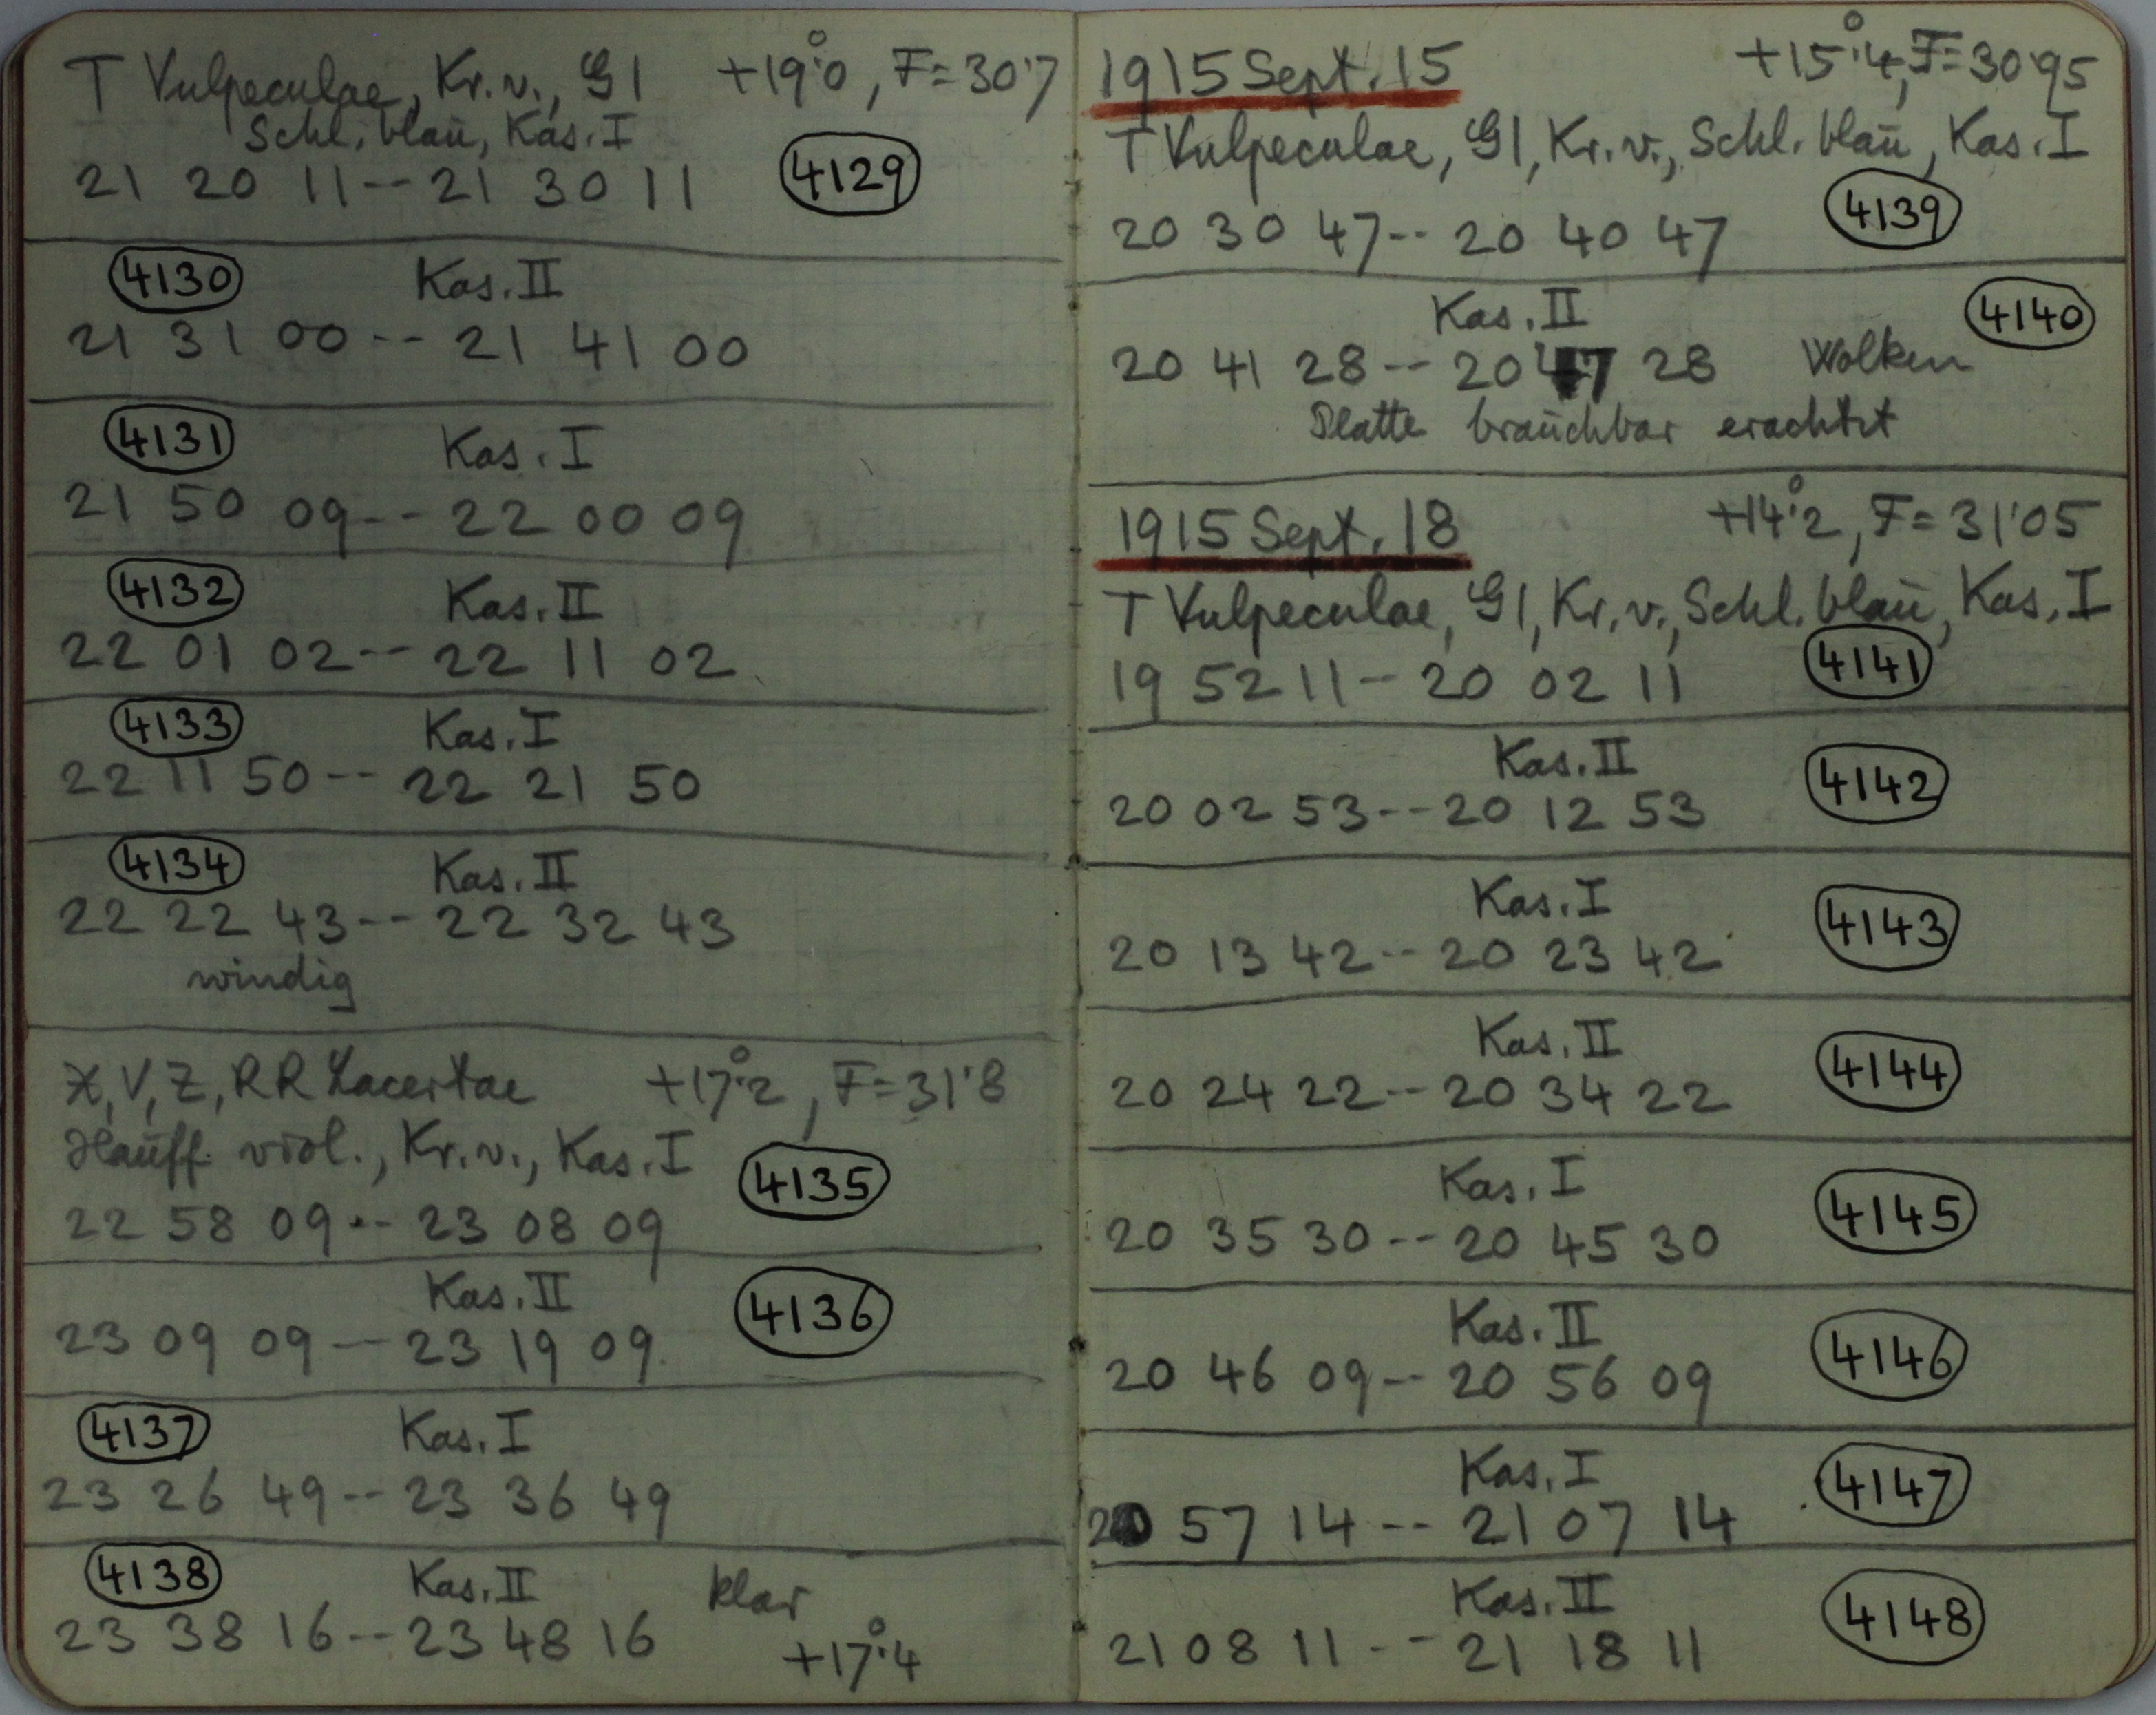 T Vulpeculae, Kr. v., Gl +19°.0, F = 30.7
Schl. blau, Kas. I
21 20 11 -- 21 30 11 4129
4130 Kas. II
21 31 00 -- 21 41 00
4131 Kas. I
21 50 09 -- 22 00 09
4132 Kas. II
22 01 02 -- 22 11 02
4133 Kas. I
22 11 50 -- 22 21 50
4134 Kas. II
22 22 43 -- 22 32 43
windig
X, V, Z, RR Lacertae +17°.2, F = 31.8
Hauff. viol., Kr. v., Kas. I 4135
22 58 09 -- 23 08 09
Kas. II 4136
23 09 09 -- 23 19 09
4137 Kas. I
23 26 49 -- 23 36 49
4138 Kas. II klar
23 38 16 -- 23 48 16 +17°.4
1915 Sept. 15 +15°.4, F = 30.95
T Vulpeculae, Gl, Kr. v., Schl. blau, Kas. I
20 30 47 -- 20 40 47 4139
Kas. II 4140
20 41 28 -- 20 47 28 Wolken
Platte brauchbar erachtet
1915 Sept. 18 +14°.2, F = 31.05
T Vulpeculae, Gl, Kr. v., Schl. blau, Kas. I
19 52 11 -- 20 02 11 4141
Kas. II 4142
20 02 53 -- 20 12 53
Kas. I 4143
20 13 42 -- 20 23 42
Kas. II 4144
20 24 22 -- 20 34 22
Kas. I 4145
20 35 30 -- 20 45 30
Kas. II 4146
20 46 09 -- 20 56 09
Kas. I 4147
20 57 14 -- 21 07 14
Kas. II 4148
21 08 11 -- 21 18 11